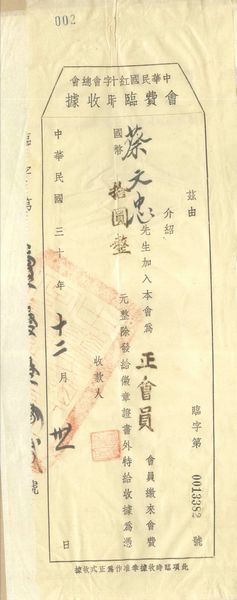 002
中華民國紅十字會總會
會費臨時收據
臨字第 0013382 號
茲由
介紹
蔡文忠先生加入本會為正會員會員繳來會費
國幣拾圓整元整除發給徽章證書外特給收據為憑
收款人
中華民國三十年十二月卅日
號
此項臨時收據準作為正式收據